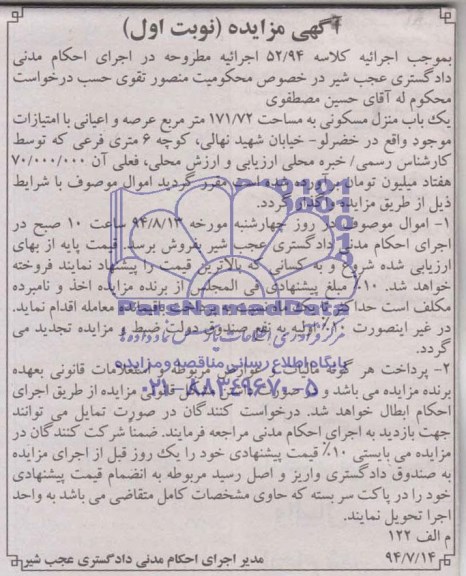 آگهی مزایده (نوبت اول)
بموجب اجرائیه کلاسه ۵۲/۹۴ اجرائیه مطروحه در اجرای احکام مدنی
دادگستری عجب شیر در خصوص محکومیت منصور تقوی حسب درخواست
محکوم له آقای حسین مصطفوی
یک باب منزل مسکونی به مساحت ۱۷۱/۷۲ متر مربع عرصه و اعیانی با امتیازات
موجود واقع در خضرلو- خیابان شهید نهالی، کوچه ۶ متری فرعی که توسط
کارشناس رسمی/ خبره محلی ارزیابی و ارزش محلی، فعلی آن ۷۰/۰۰۰/۰۰۰
هفتاد میلیون تومان مقرر گردید اموال موصوف با شرایط
ذیل از طریق مزایده واگذار گردد.
۱- اموال موصوف در روز چهارشنبه مورخه ۹۴/۸/۱۳ ساعت ۱۰ صبح در
اجرای احکام مدنی دادگستری عجب شیر بفروش برسد. قیمت پایه از بهای
ارزیابی شده شروع و به کسانی که بالاترین قیمت را پیشنهاد نمایند فروخته
خواهد شد. ۱۰٪ مبلغ پیشنهادی فی المجلس از برنده مزایده اخذ و نامبرده
مکلف است حداکثر معامله اقدام نماید.
در غیر اینصورت ۱۰٪ اولیه به نفع صندوق دولت ضبط و مزایده تجدید می
گردد.
۲- پرداخت هر گونه مالیات و عوارض مربوطه و استعلامات قانونی بعهده
برنده مزایده می باشد و در صورت مزایده از طریق اجرای
احکام ابطال خواهد شد. درخواست کنندگان در صورت تمایل می توانند
جهت بازدید به اجرای احکام مدنی مراجعه فرمایند. ضمنا شرکت کنندگان در
مزایده می بایستی ۱۰٪ قیمت پیشنهادی خود را یک روز قبل از اجرای مزایده
به صندوق دادگستری واریز و اصل رسید مربوطه به انضمام قیمت پیشنهادی
خود را در پاکت سر بسته که حاوی مشخصات کامل متقاضی می باشد به واحد
اجرا تحویل نمایند.
م الف ۱۲۲
۹۴/۷/۱۴ مدیر اجرای احکام مدنی دادگستری عجب شیر
ParsNamadData
مرکز فرآوری اطلاعات پارس نماد داده ها
پایگاه اطلاع رسانی مناقصه و مزایده
۰۲۱-۸۸۳۴۹۶۷۰-۵